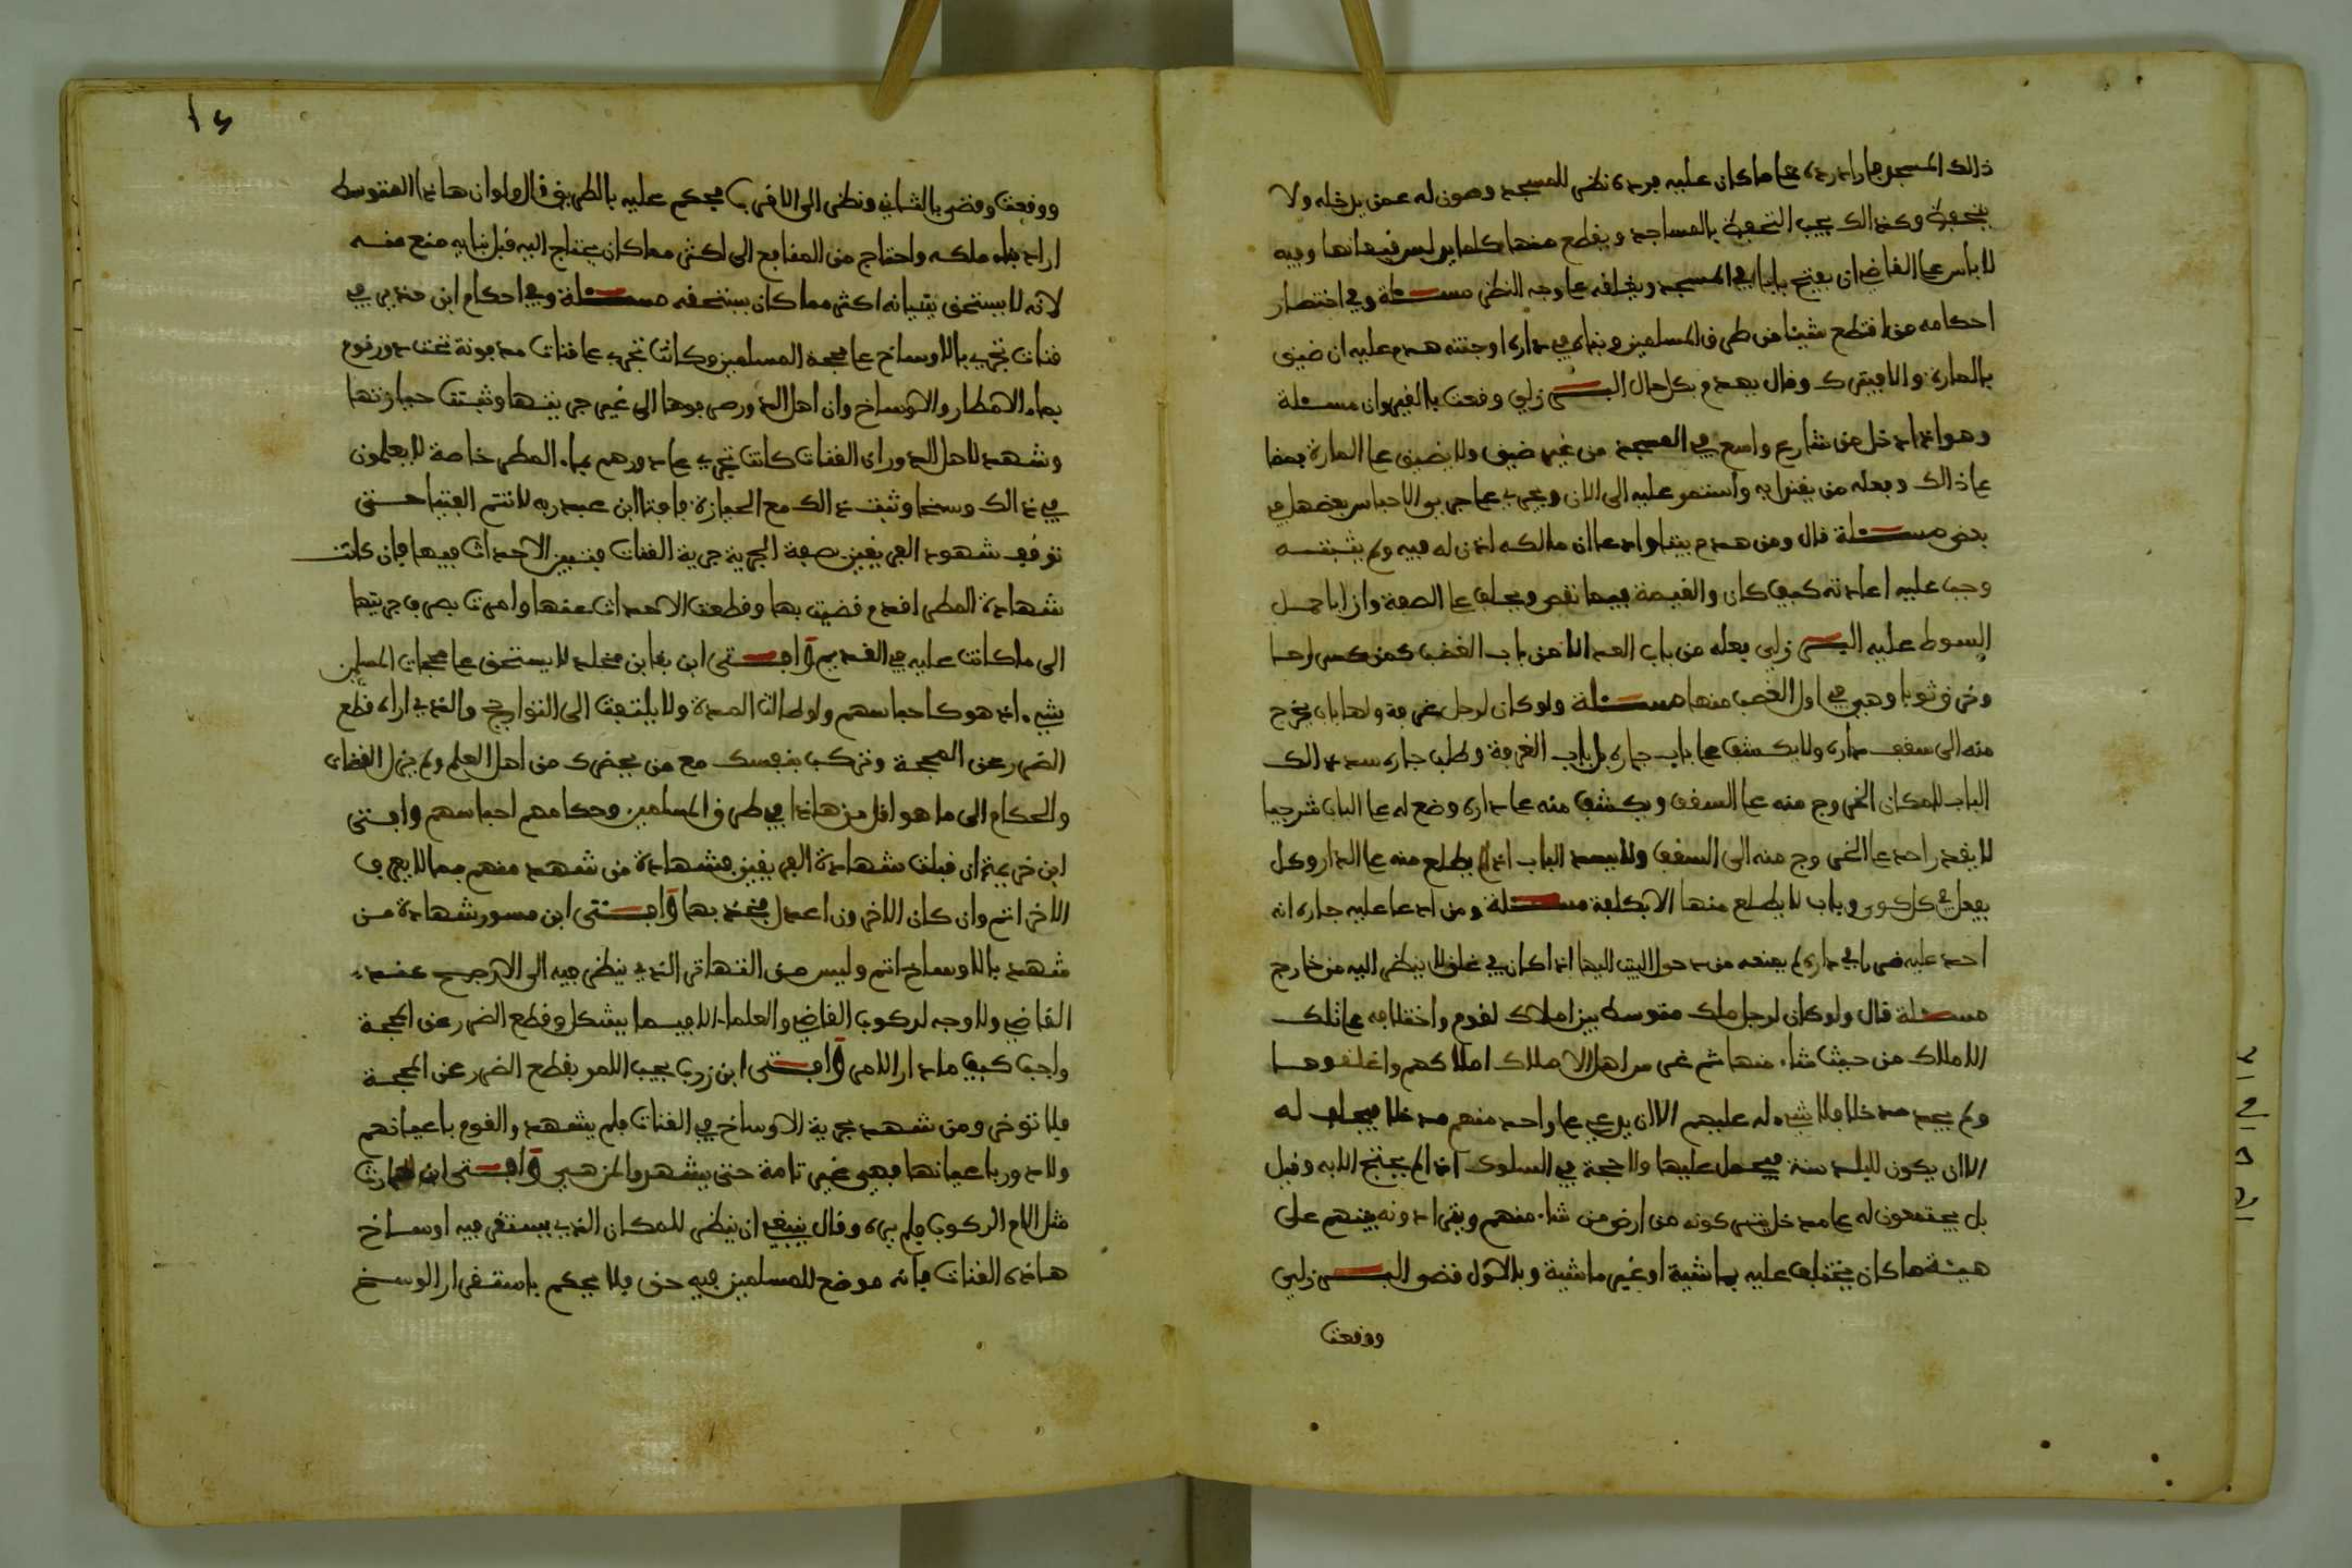 ذالك المسجد فاراد رده على ما كان عليه فرده نظر للمسجد وصون له عمن يدخله ولا
بنجوة وكذالك يجب التحفظ بالمساجد ويقطع منها كلما يوليس فيها نها وفيه
لا باس على القاضي ان يفتح بابا في المسجد ويغلقه على وجه النظر مسئلة وفي اختصار
احكامه من اقتطع شيئا من طرق المسلمين وبناه في داره او جنته هدم عليه ان ضيق
بالمارة والا فيترك وقال يهدم بكل حال البرزلي وقعت بالقيروان مسئلة
وهو اذا ادخل من شارع واسع في المسجد من غير ضيق ولا يضيق على المارة فمضا
على ذالك وفعله من يقتدا به واستمر عليه الى الان ويجري على جري الاحباس بعضها في
بعض مسئلة قال ومن هدم بيتا وادعا ان مالكه اذن له فيه ولم يثبته
وجب عليه اعادته كيف كان والقيمة فيما نقص ويحلف على الصفة وان اباح
السوط عليه البرزلي جعله من باب العداء لا من باب الغصب كمن كسر
وخرق ثوبا وهي في اول الغصب منها مسئلة ولو كان لرجل غرفة ولها باب يخرج
منه الى سقف داره ولا يكشف على باب جاره بل باب الغرفة وطلب جاره سد ذالك
الباب لامكان الخروج منه على السقف ويكشف منه على داره وضع له على الباب شرجبا
لا يقدر احد على الخروج منه الى السقف ولا يسد الباب اذا لم يطلع منه على الدار وكل
يفعل في كل كوى وباب لا يطلع منها الا بكلفة مسئلة ومن ادعا عليه جاره انه
احدث عليه ضررا في داره لم يمنعه من دخول البيت اليها اذا كان في غلق لا ينظر اليه من خارج
مسئلة قال ولو كان لرجل ملك متوسط بين املاك لقوم واختلافه على تلك
الاملاك من حيث شاء منها ثم غرس اهل الاملاك املاكهم واغلقوها
ولم يجد مدخلا فلا شيء له عليهم الا ان يدعي على واحد منهم مدخلا فيحلف له
الا ان يكون للبلد سنة فيحمل عليها ولا حجة في السلوك اذا لم يحتج الا به وقيل
بل يجتمعون له على مدخل يتركونه من ارض من شاء منهم وبقرا دونه بينهم على
هيئة ما كان يختلف عليه بماشية او غير ماشية وبالاول قضى البرزلي
ووقعت
١٤
ووقعت وقضى بالثاني ونظر الى الاقرب فحكم عليه بالطريق قال ولو ان هاذا المتوسط
اراد بناء ملكه واحتاج من المنافع الى اكثر مما كان يحتاج اليه قبل بنايه منع منه
لانه لا يستحق بتبيانه اكثر مما كان يستحقه مسئلة وفي احكام ابن حدير في
قنات تجري بالاوساخ على محجة المسلمين وكانت تجري على قنات مدفونة تحت دور قوم
بماء الامطار والاوساخ وان اهل الدور صرفوها الى غير جريتها وثبتت حيازتها
وشهد لاهل الدور ان القنات كانت تجري على دورهم بماء المطر خاصة لا يعلمون
في ذالك وسخا وثبت ذالك مع الحيازة فافتا ابن عبد ربه لا تتم الفتيا حتى
توقف شهود الفريقين صفة الجرية جرية القنات فتبين الاحداث فيها فان كانت
شهادة المطر اقدم قضيت بها وقطعت الاحداث عنها وامرت بصرف جريتها
الى ما كانت عليه في القديم وافتى ابن بقا بن مخلد لا يستحق على محجات المسلمين
بشيء اذ هو كاحباسهم ولو طالت المدة ولا يلتفت الى التواريخ والذي اراه قطع
الضرر عن المحجة وتركب بنفسك مع من يحضرك من اهل العلم ولم يزل القضاة
والحكام الى ما هو اقل من هاذا في طرق المسلمين وحكامهم احباسهم وافتى
ابن خزيمة ان قبلت شهادة الفريقين فشهادة من شهد منهم بما لا يعرف
الاخر اتم وان كان الاخرون اعدل فخذ بها وافتى ابن مسور شهادة من
شهد بالاوساخ اتم وليس من التهاتر الذي ينظر فيه الى الارجح عند
القاضي ولا وجه لركوب القاضي والعلماء الا فيما يشكل وقطع الضرر عن المحجة
واجب كيف ما دار الامر وافتى ابن زرب يجب الامر بقطع الضرر عن المحجة
فلا توخر ومن شهد بجرية الاوساخ في القنات فلم يشهد والقوم باعيانهم
ولا دور باعيانها فهي غير تامة حتى يشهدوا لمن هي وافتى ابن الحارث
مثل الامام الركوب فلم يره وقال ينبغي ان ينظر للمكان الذي يستقر فيه اوساخ
هاذه القنات فانه موضع للمسلمين فيه حق فلا يحكم باستقرار الوسخ